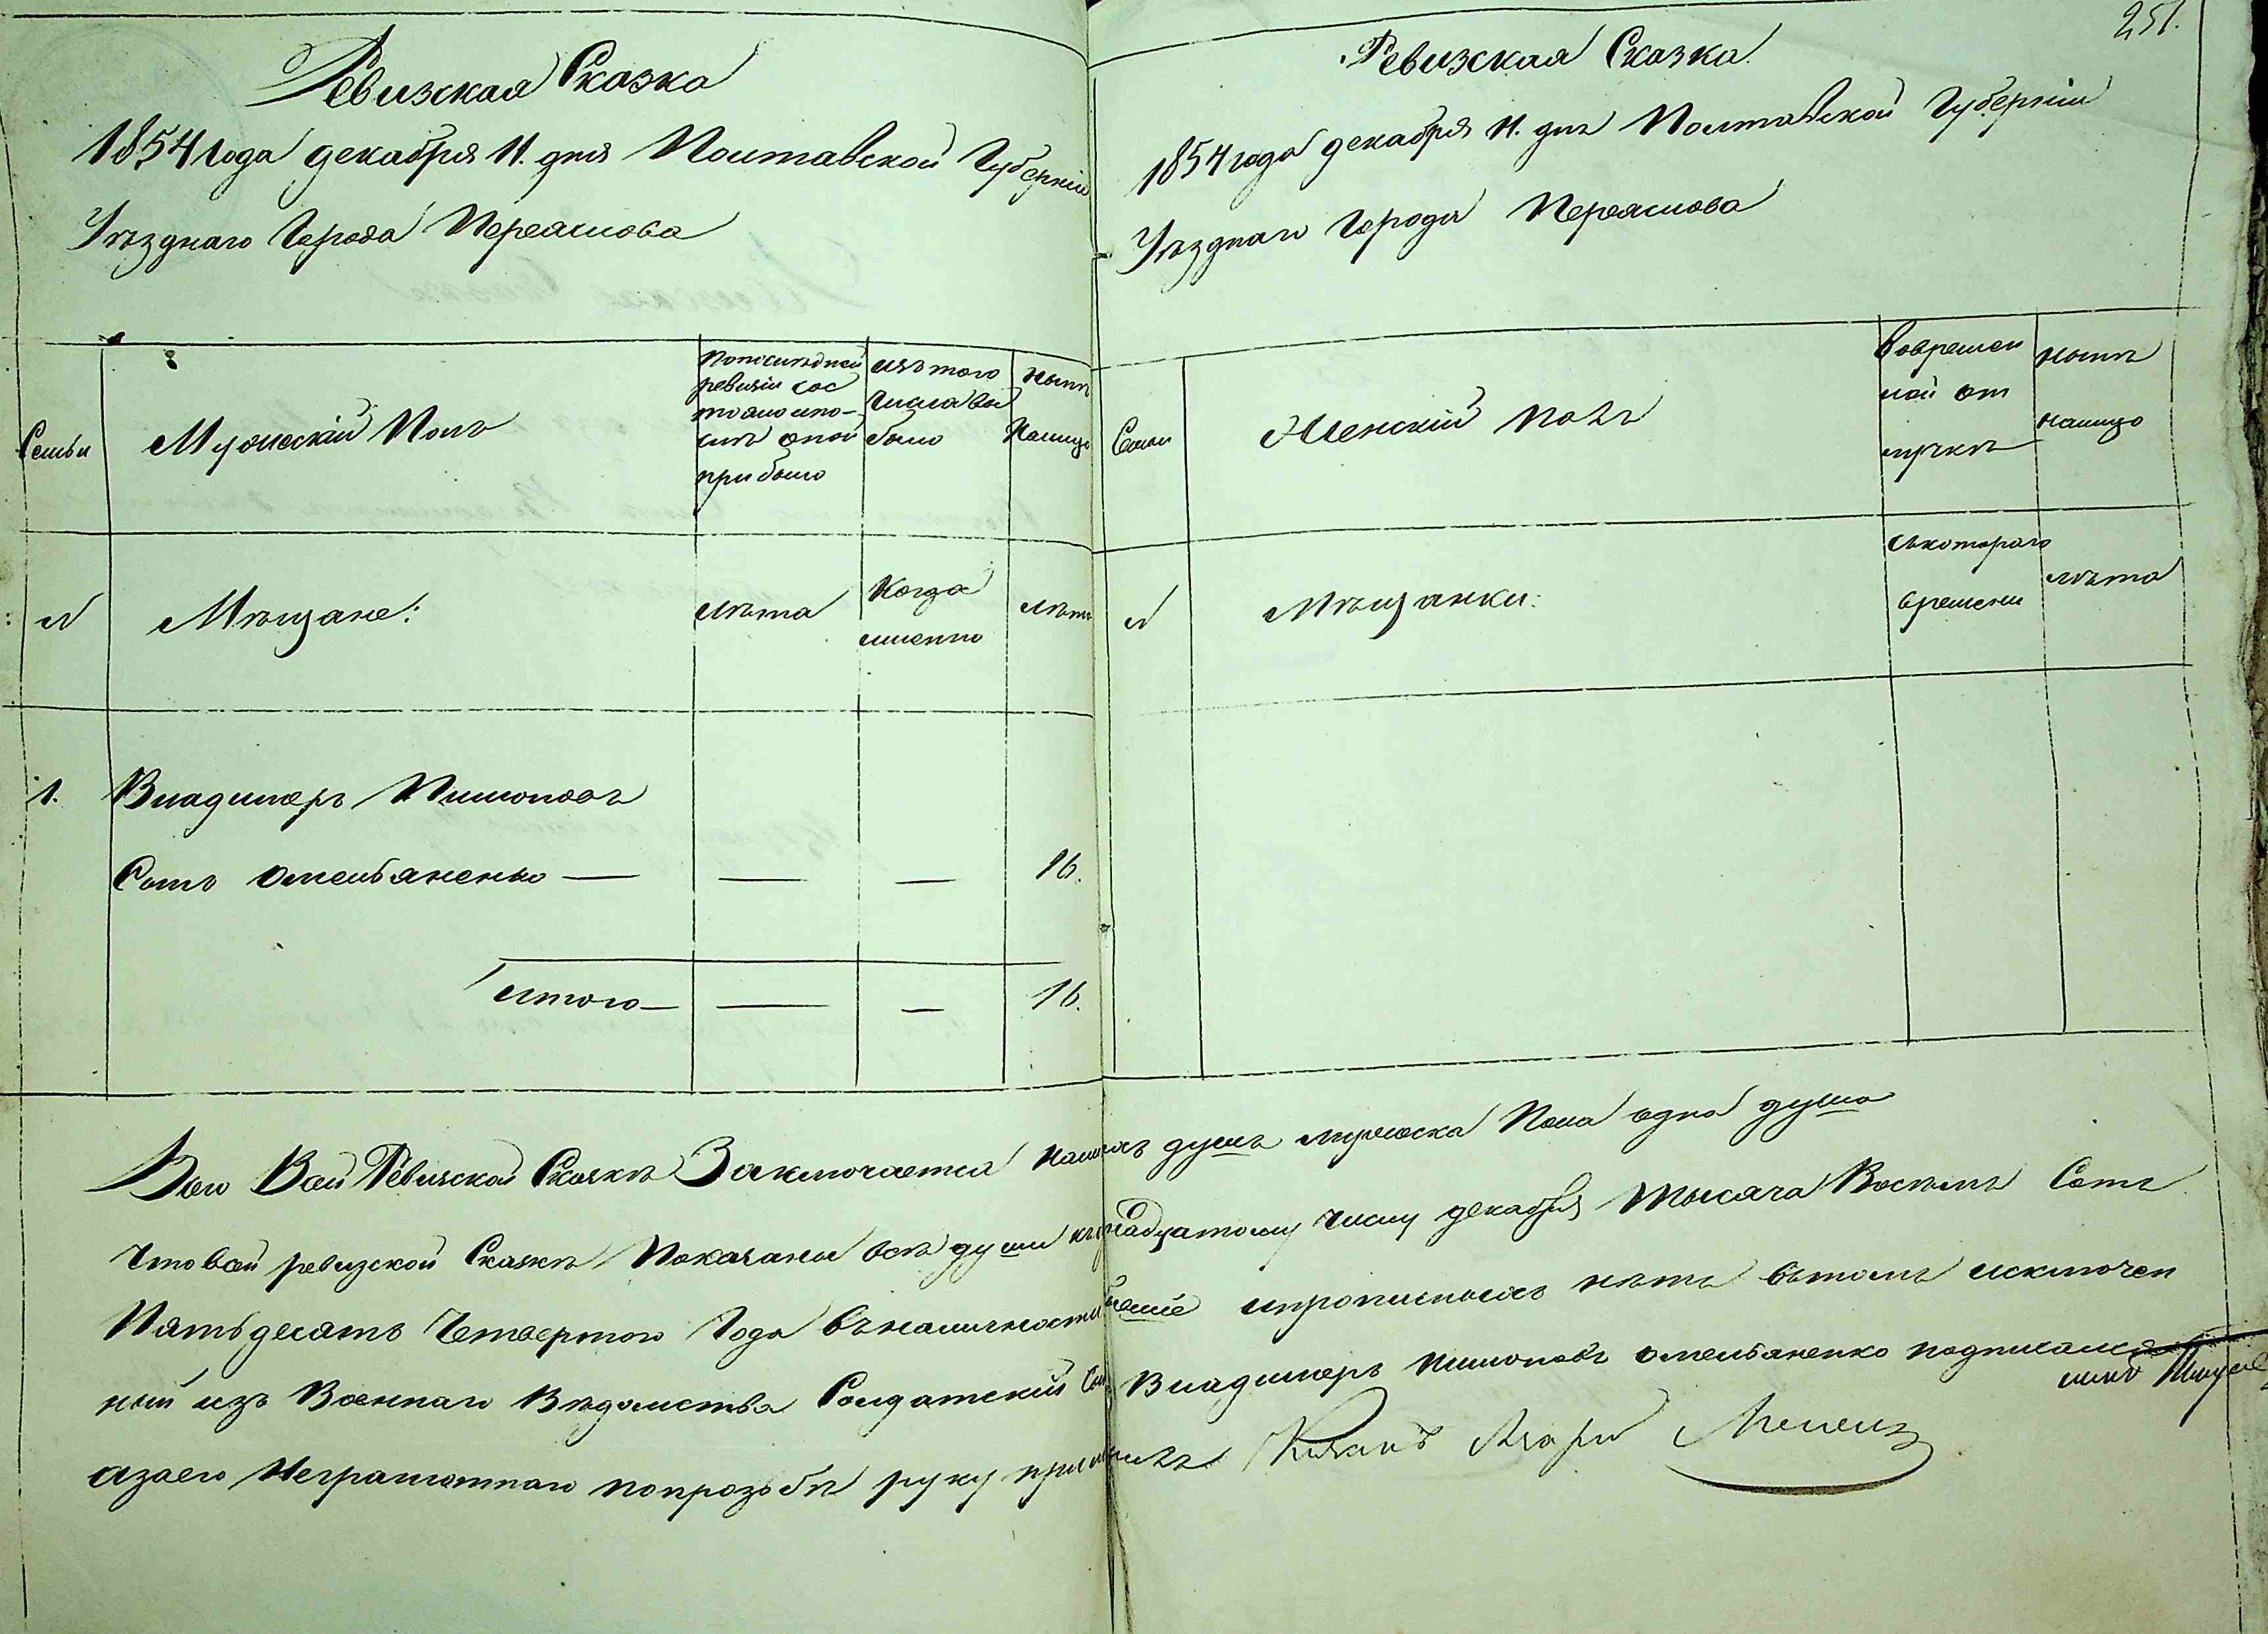 251.
Ревизская Сказка
1854 года декабря 11. дня Полтавской Губерніи
Уѣзднаго Города Переяслова
Семьи
Мужескій Полъ
Попослѣдней ревизіи сос тояло ипо- слѣ оной прибыло
изъ того числа вы было
нынѣ налицо
N
Мѣщане:
лѣта
Когда именно
лѣта
1. Владимеръ Пилиповъ
Сынъ Омельяненко — — — 16.
итого — — — 16.
Ревизская Сказка
1854 года декабря 11. дня Полтавской Губерніи
Уѣзднаго Города Переяслова
Семьи
Женскій полъ
вовремен ной от лучкѣ
нынѣ налицо
N
Мѣщанки:
съкотораго времени
лѣта
Всей Ревизской Сказкѣ Заключается душъ мужеска Пола одна душа
Что вс̀ей ревизской Сказкѣ Показаны всѣ души числу декабря тысяча Восемь Сотъ
Пятьдесятъ Четвертого Года въналичности ипрописныхъ нѣтъ вътомъ исключен
ный изъ Военнаго Вѣдомства Солдатскій Сынъ Владимеръ Пилиповъ Омельяненко подписался
азаего Неграмотнаго попрозьбѣ руку приложилъ